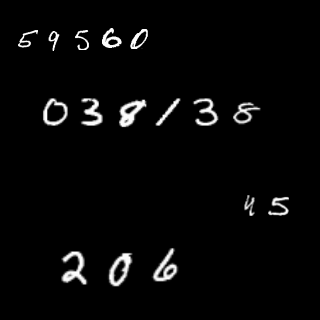 59560
038138
45
206